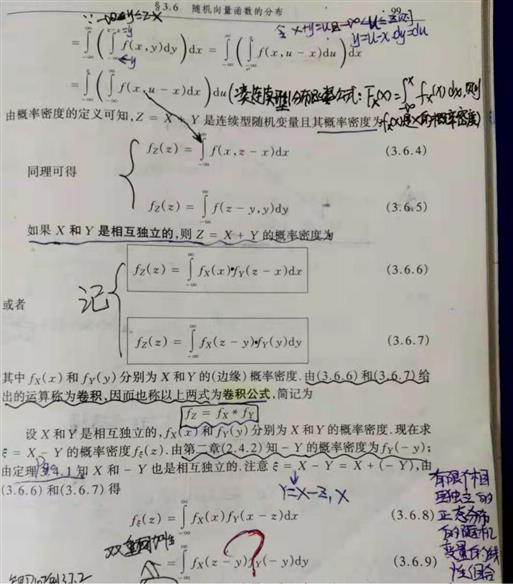 §3.6 随机向量函数的分布
99
∵ -∞<y≤z-x
令 x+y=u
y=u-x, dy=du
= ∫(∫f(x,y)dy)dx = ∫(∫f(x,u-x)du)dx
= ∫(∫f(x,u-x)dx)du
由概率密度的定义可知,Z = X + Y 是连续型随机变量且其概率密度为
f_Z(z) = ∫_{-∞}^{∞} f(x,z-x)dx (3.6.4)
同理可得
f_Z(z) = ∫_{-∞}^{∞} f(z-y,y)dy (3.6.5)
如果 X 和 Y 是相互独立的,则 Z = X + Y 的概率密度为
记
f_Z(z) = ∫_{-∞}^{∞} f_X(x)·f_Y(z-x)dx (3.6.6)
或者
f_Z(z) = ∫_{-∞}^{∞} f_X(z-y)·f_Y(y)dy (3.6.7)
其中 f_X(x) 和 f_Y(y) 分别为 X 和 Y 的(边缘)概率密度.由(3.6.6)和(3.6.7)给
出的运算称为卷积,因而也称以上两式为卷积公式,简记为
f_Z = f_X * f_Y
设 X 和 Y 是相互独立的,f_X(x) 和 f_Y(y) 分别为 X 和 Y 的概率密度.现在求
ξ = X - Y 的概率密度 f_ξ(z).由第二章(2.4.2)知 -Y 的概率密度为 f_Y(-y);
由定理3.4.1知 X 和 -Y 也是相互独立的.注意 ξ = X - Y = X + (-Y),由
(3.6.6)和(3.6.7)得
Y=X-Z, X
f_ξ(z) = ∫_{-∞}^{∞} f_X(x)f_Y(x-z)dx (3.6.8)
= ∫_{-∞}^{∞} f_X(z-y)f_Y(-y)dy (3.6.9)
?
有限个相
互独立的
正态分布
的随机
变量的线
性组合